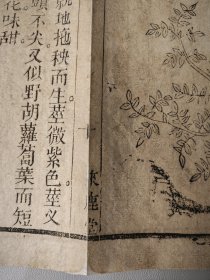 就地拖秧而生莖微紫色莖叉
頭不尖又似野胡蘿蔔葉而短
花味甜
十